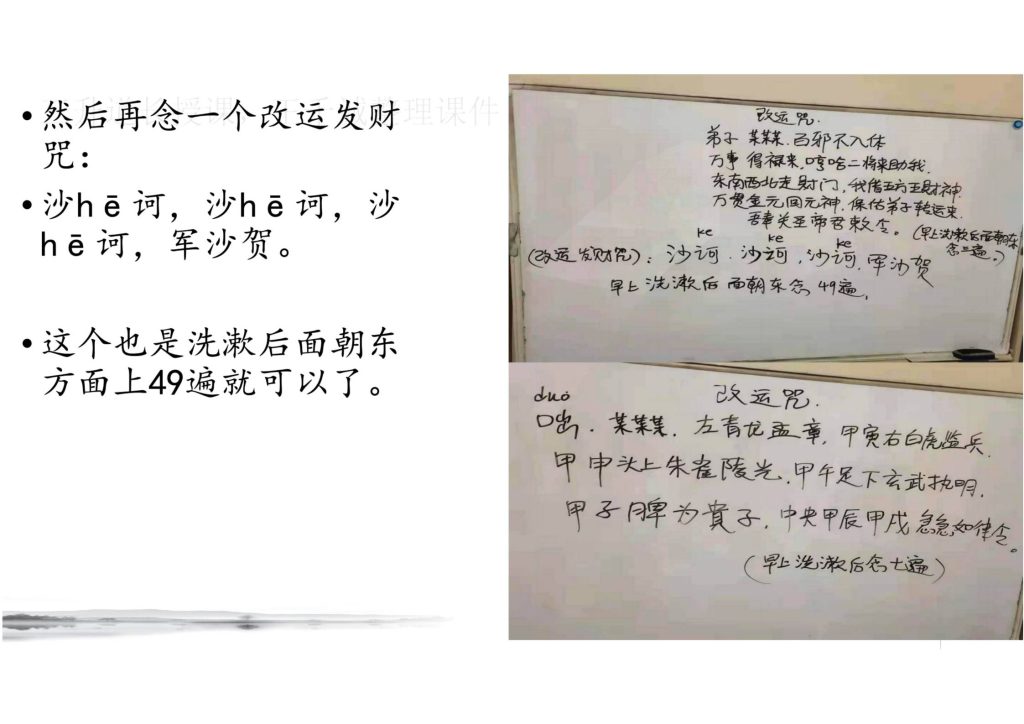 • 然后再念一个改运发财
咒：
• 沙hē诃，沙hē诃，沙
hē诃，军沙贺。
• 这个也是洗漱后面朝东
方面上49遍就可以了。
改运咒.
弟子某某某.百邪不入体
万事得禄来,哼哈二将来助我.
东南西北走财门，我借五方五财神.
万贯金元回元神.保佑弟子转运来.
吾奉关圣帝君敕令。(早上洗漱后面朝东
念三遍。)
ke ke ke
(改运发财咒)：沙诃.沙诃,沙诃.军沙贺
早上洗漱后面朝东念49遍.
duó 改运咒.
咄.某某某.左青龙孟章,甲寅右白虎监兵.
甲申头上朱雀陵光.甲午足下玄武执明.
甲子脾为貴子,中央甲辰甲戌急急如律令。
(早上洗漱后念七遍)